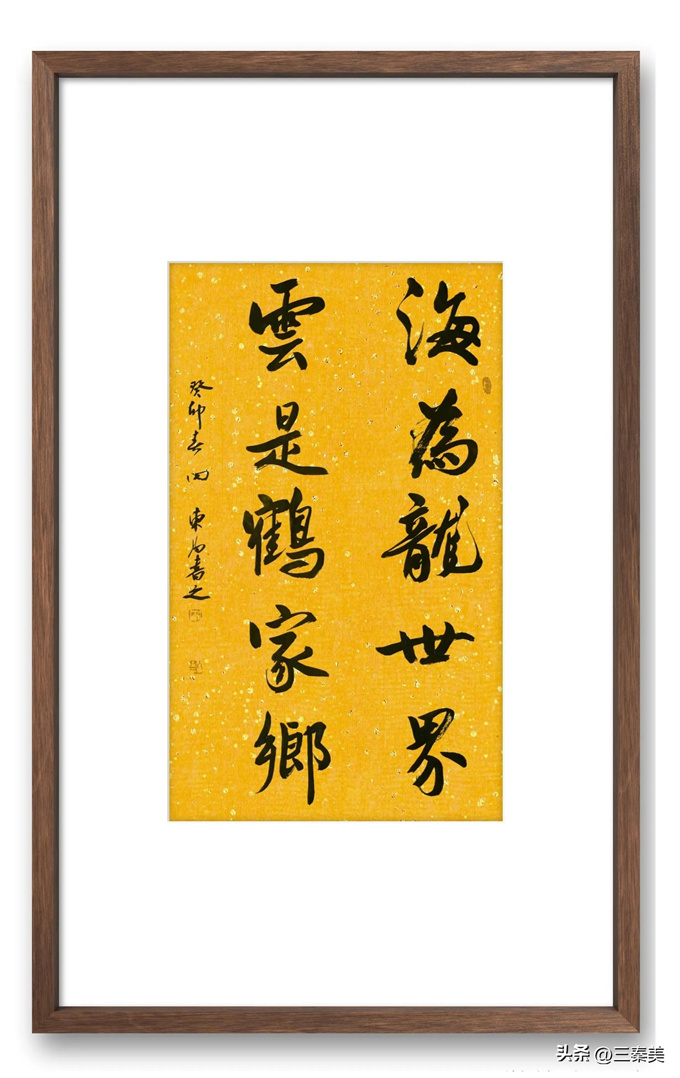 海為龍世界
雲是鶴家鄉
癸卯春 田東 書之
头条 @三秦美